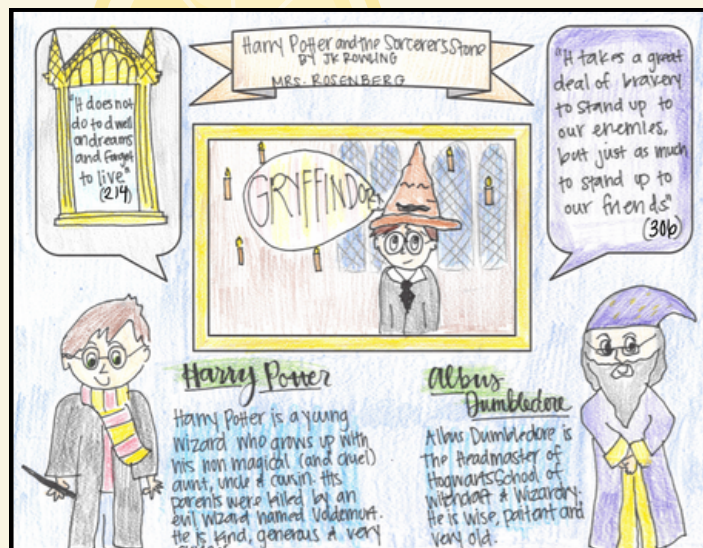 Harry Potter and the Sorcerer's Stone
BY JK ROWLING
MRS. ROSENBERG
"It does not
do to dwell
on dreams
and forget
to live"
(214)
"It takes a great
deal of bravery
to stand up to
our enemies,
but just as much
to stand up to
our friends"
(306)
GRYFFINDOR
Harry Potter
Harry Potter is a young
wizard who grows up with
his non magical (and cruel)
aunt, uncle & cousin. His
parents were killed by an
evil wizard named Voldemort.
He is kind, generous & very
Albus
Dumbledore
Albus Dumbledore is
The Headmaster of
Hogwarts School of
witchcraft & Wizardry.
He is wise, patient and
very old.